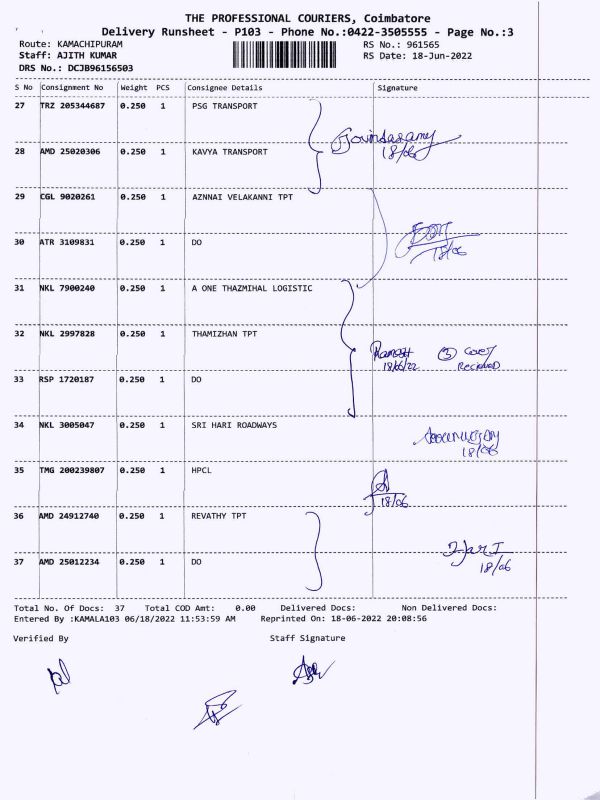 THE PROFESSIONAL COURIERS, Coimbatore
Delivery Runsheet - P103 - Phone No.:0422-3505555 - Page No.:3
Route: KAMACHIPURAM RS No.: 961565
Staff: AJITH KUMAR RS Date: 18-Jun-2022
DRS No.: DCJB96156503
S No Consignment No Weight PCS Consignee Details Signature
27 TRZ 205344687 0.250 1 PSG TRANSPORT
Govindasamy
28 AMD 25020306 0.250 1 KAVYA TRANSPORT 18/06
29 CGL 9020261 0.250 1 AZNNAI VELAKANNI TPT
30 ATR 3109831 0.250 1 DO
18/06
31 NKL 7900240 0.250 1 A ONE THAZMIHAL LOGISTIC
32 NKL 2997828 0.250 1 THAMIZHAN TPT
Ramesh 3 Cover
18/06/22 Recieved
33 RSP 1720187 0.250 1 DO
34 NKL 3005047 0.250 1 SRI HARI ROADWAYS
18/06
35 TMG 200239807 0.250 1 HPCL
18/06
36 AMD 24912740 0.250 1 REVATHY TPT
Hari
37 AMD 25012234 0.250 1 DO 18/06
Total No. Of Docs: 37 Total COD Amt: 0.00 Delivered Docs: Non Delivered Docs:
Entered By :KAMALA103 06/18/2022 11:53:59 AM Reprinted On: 18-06-2022 20:08:56
Verified By Staff Signature